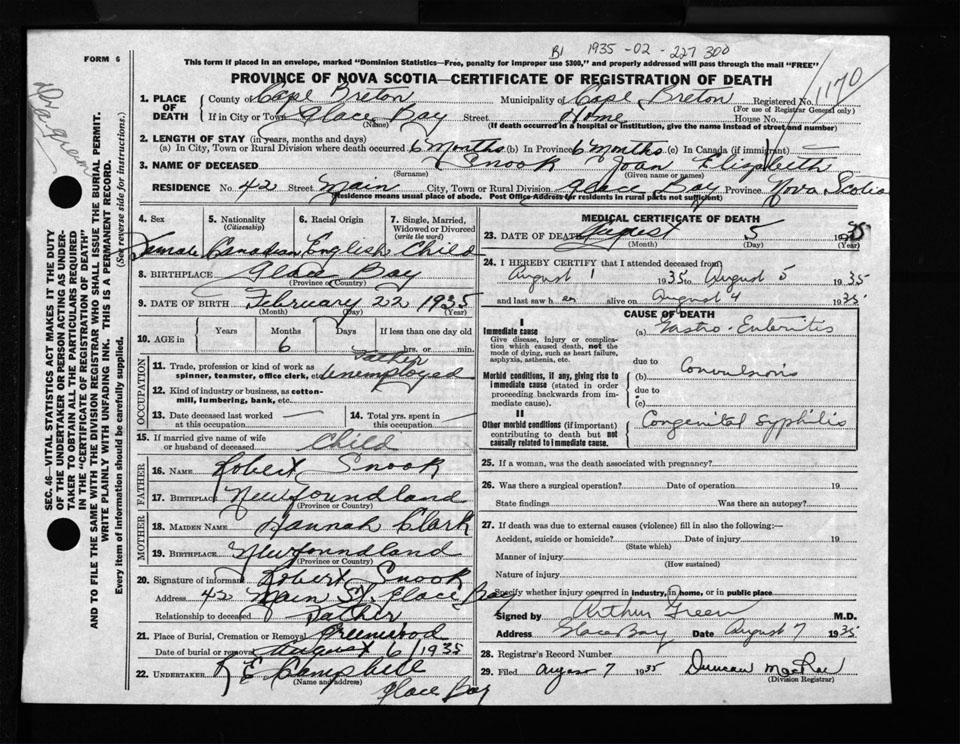 FORM 6
B1 1935-02-227300
This form if placed in an envelope, marked "Dominion Statistics—Free, penalty for improper use $300," and properly addressed will pass through the mail "FREE"
PROVINCE OF NOVA SCOTIA—CERTIFICATE OF REGISTRATION OF DEATH
1170
1. PLACE OF DEATH
County of Cape Breton Municipality of Cape Breton Registered No.
(For use of Registrar General only)
If in City or Town Glace Bay Street Home House No.
(Name) (If death occurred in a hospital or institution, give the name instead of street and number)
2. LENGTH OF STAY (in years, months and days)
(a) In City, Town or Rural Division where death occurred 6 months (b) In Province 6 months (c) In Canada (if immigrant) —
3. NAME OF DECEASED Snook Joan Elizabeth
(Surname) (Given name or names)
RESIDENCE No. 42 Street Main City, Town or Rural Division Glace Bay Province Nova Scotia
(Residence means usual place of abode. Post Office Address for residents in rural parts not sufficient)
4. Sex
5. Nationality (Citizenship)
6. Racial Origin
7. Single, Married, Widowed or Divorced (write the word)
Female Canadian English Child
8. BIRTHPLACE Glace Bay
(Province or Country)
9. DATE OF BIRTH February 22 1935
(Month) (Day) (Year)
10. AGE in
Years Months Days If less than one day old
6 hrs. or min.
OCCUPATION
11. Trade, profession or kind of work as spinner, teamster, office clerk, etc. Father unemployed
12. Kind of industry or business, as cotton-mill, lumbering, bank, etc.
13. Date deceased last worked at this occupation —
14. Total yrs. spent in this occupation —
15. If married give name of wife or husband of deceased Child
FATHER
16. NAME Robert Snook
17. BIRTHPLACE Newfoundland
(Province or Country)
MOTHER
18. MAIDEN NAME Hannah Clark
19. BIRTHPLACE Newfoundland
(Province or Country)
20. Signature of informant Robert Snook
Address 42 Main St. Glace Bay
Relationship to deceased Father
21. Place of Burial, Cremation or Removal Greenwood
Date of burial or removal August 6/1935
22. UNDERTAKER Campbell
(Name and address)
Glace Bay
MEDICAL CERTIFICATE OF DEATH
23. DATE OF DEATH August 5 1935
(Month) (Day) (Year)
24. I HEREBY CERTIFY that I attended deceased from
August 1 1935 to August 5 1935
and last saw her alive on August 4 1935
CAUSE OF DEATH
I
Immediate cause
Give disease, injury or complication which caused death, not the mode of dying, such as heart failure, asphyxia, asthenia, etc.
(a) Gastro-Enteritis
due to
Morbid conditions, if any, giving rise to immediate cause (stated in order proceeding backwards from immediate cause).
(b) Convulsions
due to
(c)
II
Other morbid conditions (if important) contributing to death but not causally related to immediate cause.
Congenital Syphilis
25. If a woman, was the death associated with pregnancy?
26. Was there a surgical operation? Date of operation 19
State findings Was there an autopsy?
27. If death was due to external causes (violence) fill in also the following:—
Accident, suicide or homicide? Date of injury 19
(State which)
Manner of injury
(How sustained)
Nature of injury
Specify whether injury occurred in industry, in home, or in public place
Signed by Arthur Green M.D.
Address Glace Bay Date August 7 1935
28. Registrar's Record Number
29. Filed August 7 1935 Duncan MacRae
(Division Registrar)
SEC. 46—VITAL STATISTICS ACT MAKES IT THE DUTY
OF THE UNDERTAKER OR PERSON ACTING AS UNDER-
TAKER TO OBTAIN ALL THE PARTICULARS REQUIRED
IN THE "CERTIFICATE OF REGISTRATION OF DEATH"
AND TO FILE THE SAME WITH THE DIVISION REGISTRAR WHO SHALL ISSUE THE BURIAL PERMIT.
WRITE PLAINLY WITH UNFADING INK. THIS IS A PERMANENT RECORD.
Every item of information should be carefully supplied. (See reverse side for instructions.)